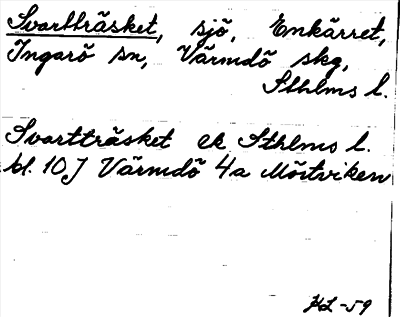 Svartträsket, sjö, Enkärret,
Ingarö sn, Värmdö skg,
Sthlms l.
Svartträsket ek Sthlms l.
bl. 10J Värmdö 4a Mörtviken
HL -59